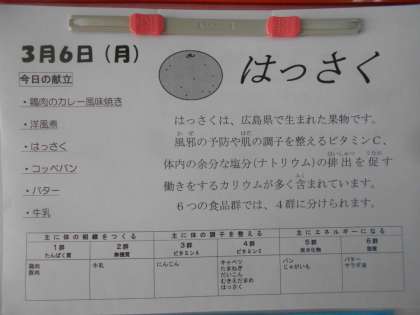 3月6日（月）
はっさく
今日の献立
・鶏肉のカレー風味焼き
・洋風煮
・はっさく
・コッペパン
・バター
・牛乳
はっさくは、広島県で生まれた果物です。
風邪の予防や肌の調子を整えるビタミンC、
体内の余分な塩分(ナトリウム)の排出を促す
働きをするカリウムが多く含まれています。
６つの食品群では、４群に分けられます。
主に体の組織をつくる 主に体の調子を整える 主にエネルギーになる
1群 2群 3群 4群 5群 6群
たんぱく質 無機質 ビタミンA ビタミンC 炭水化物 脂質
鶏肉 牛乳 にんじん キャベツ パン バター
豚肉 たまねぎ じゃがいも サラダ油
だいこん
むきえだまめ
はっさく